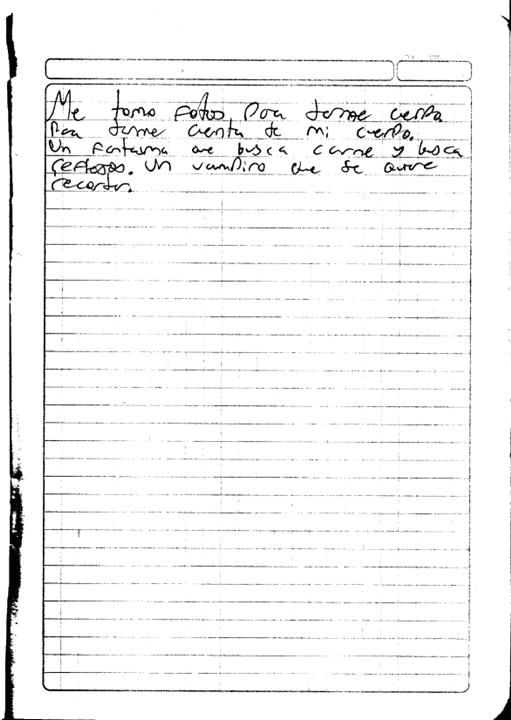 Me tomo fotos para darme cuerpo
Para darme cuenta de mi cuerpo.
Un fantasma que busca carne y busca
reflejos. Un vampiro que se quiere
recordar.